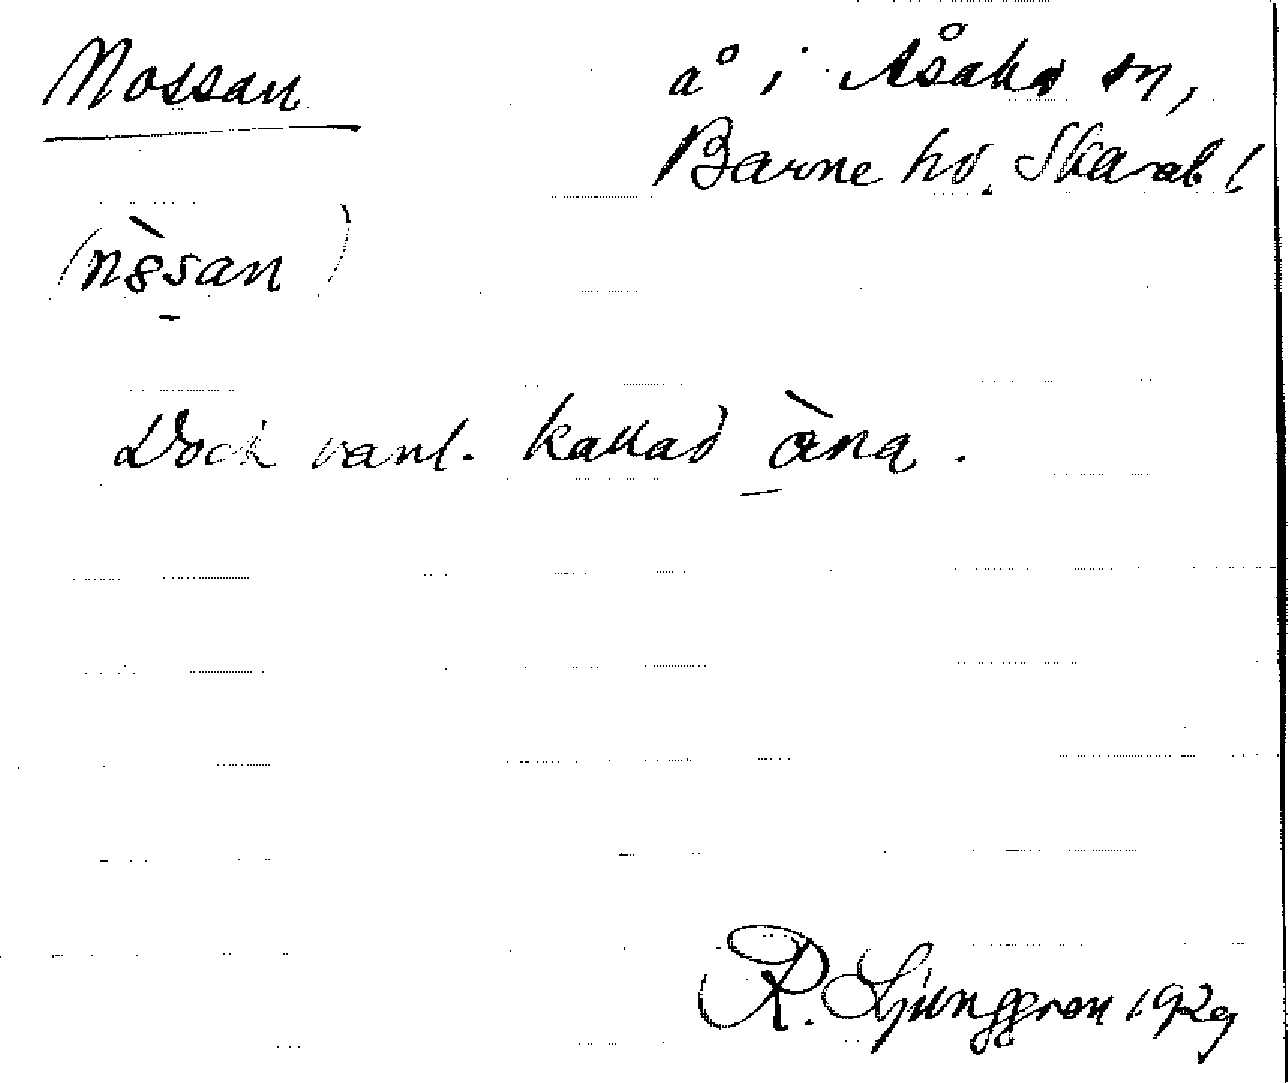 Nossan
å i Åsaka sn,
Barne hd. Skarab l
(nòsan)
Dock vanl. kallad àna.
R. Ljunggren 1929